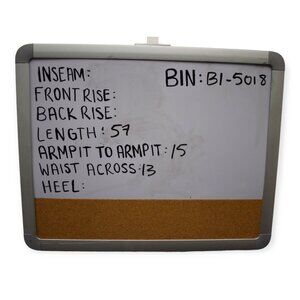 INSEAM: BIN: B1-5018
FRONT RISE:
BACK RISE:
LENGTH: 57
ARMPIT TO ARMPIT: 15
WAIST ACROSS: 13
HEEL: